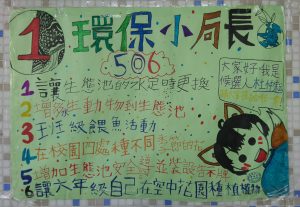 1 環保小局長
506
大家好我是
候選人杜
1 讓生態池的水定時更換
2 增添生動物到生態池
3 班級餵魚活動
4 在校園四處種不同季節的花
5 增加生態池安全
6 讓六年級自己在空中花園種植物